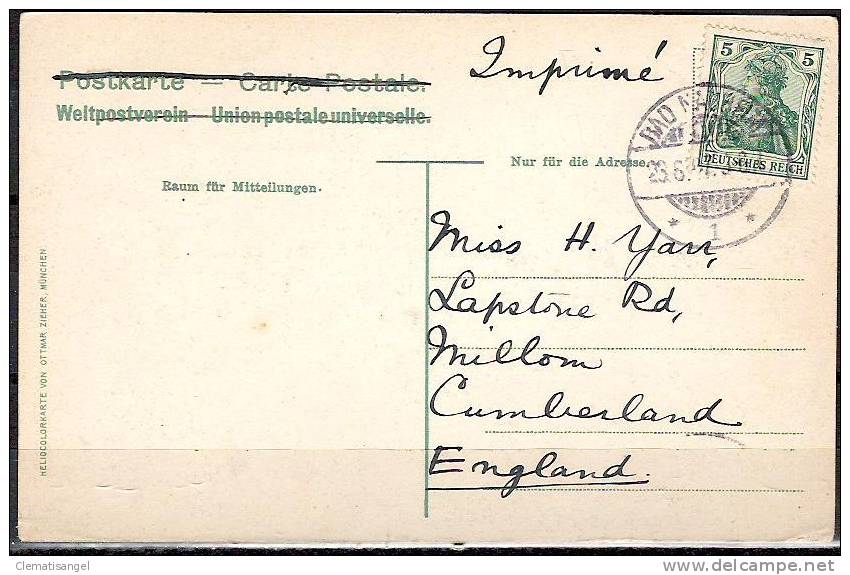 Imprimé
5 5
Postkarte — Carte Postale.
Weltpostverein — Union postale universelle.
BAD
DEUTSCHES REICH
Nur für die Adresse.
Raum für Mitteilungen.
1
Miss H. Yarr,
Lapstone Rd,
Millom
Cumberland
England.
HELIOCOLORKARTE VON OTTMAR ZIEHER, MÜNCHEN
Clematisangel
delcampe.net